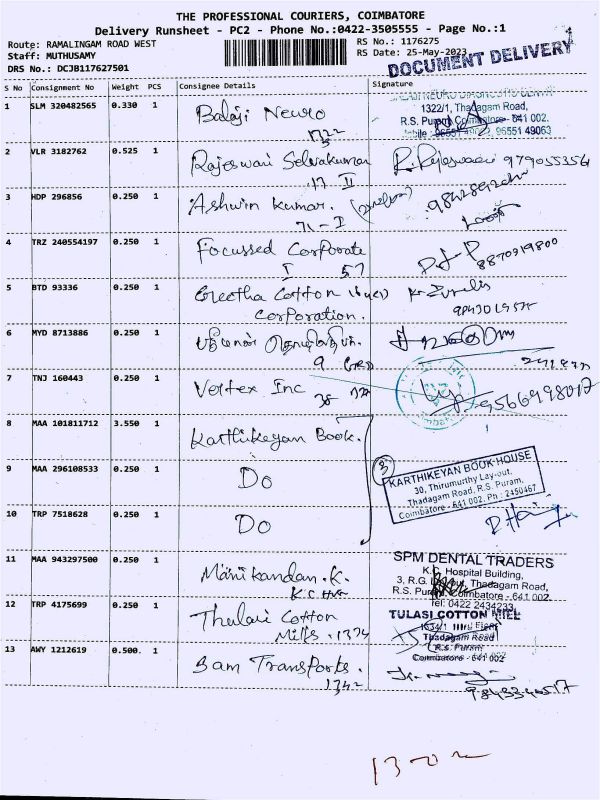 THE PROFESSIONAL COURIERS, COIMBATORE
Delivery Runsheet - PC2 - Phone No.:0422-3505555 - Page No.:1
Route: RAMALINGAM ROAD WEST
Staff: MUTHUSAMY
DRS No.: DCJB117627501
RS No.: 1176275
RS Date: 25-May-2023
DOCUMENT DELIVERY
S No Consignment No Weight PCS Consignee Details Signature
1 SLM 320482565 0.330 1 Balaji Neuro
1322
1322/1, Thadagam Road,
R.S. Puram, Coimbatore - 641 002.
96551 49063
2 VLR 3182762 0.525 1 Rajeswari Selvakumar
17 II
R. Rajeswari 979055356
3 HDP 296856 0.250 1 Ashwin Kumar.
71-I
4 TRZ 240554197 0.250 1 Focussed Corporate
I 57
8870919800
5 BTD 93336 0.250 1 Geetha Cotton
Corporation.
6 MYD 8713886 0.250 1
9 GRD
7 TNJ 160443 0.250 1 Vertex Inc
38
9566498017
8 MAA 101811712 3.550 1 Karthikeyan Book.
9 MAA 296108533 0.250 1 Do
3
KARTHIKEYAN BOOK HOUSE
30, Thirumurthy Lay-out,
Thadagam Road, R.S. Puram,
Coimbatore - 641 002. Ph : 2450467
10 TRP 7518628 0.250 1 Do
11 MAA 943297500 0.250 1 Manikandan.K.
SPM DENTAL TRADERS
K.G. Hospital Building,
3, R.G. Thadagam Road,
R.S. Puram, Coimbatore - 641 002.
Tel: 0422 2434233
12 TRP 4175699 0.250 1 Thulasi Cotton
Mills. 1334
TULASI COTTON MILL
Thadagam Road
R.S. Puram
Coimbatore - 641 002
13 AWY 1212619 0.500. 1 Sam Transports.
1342